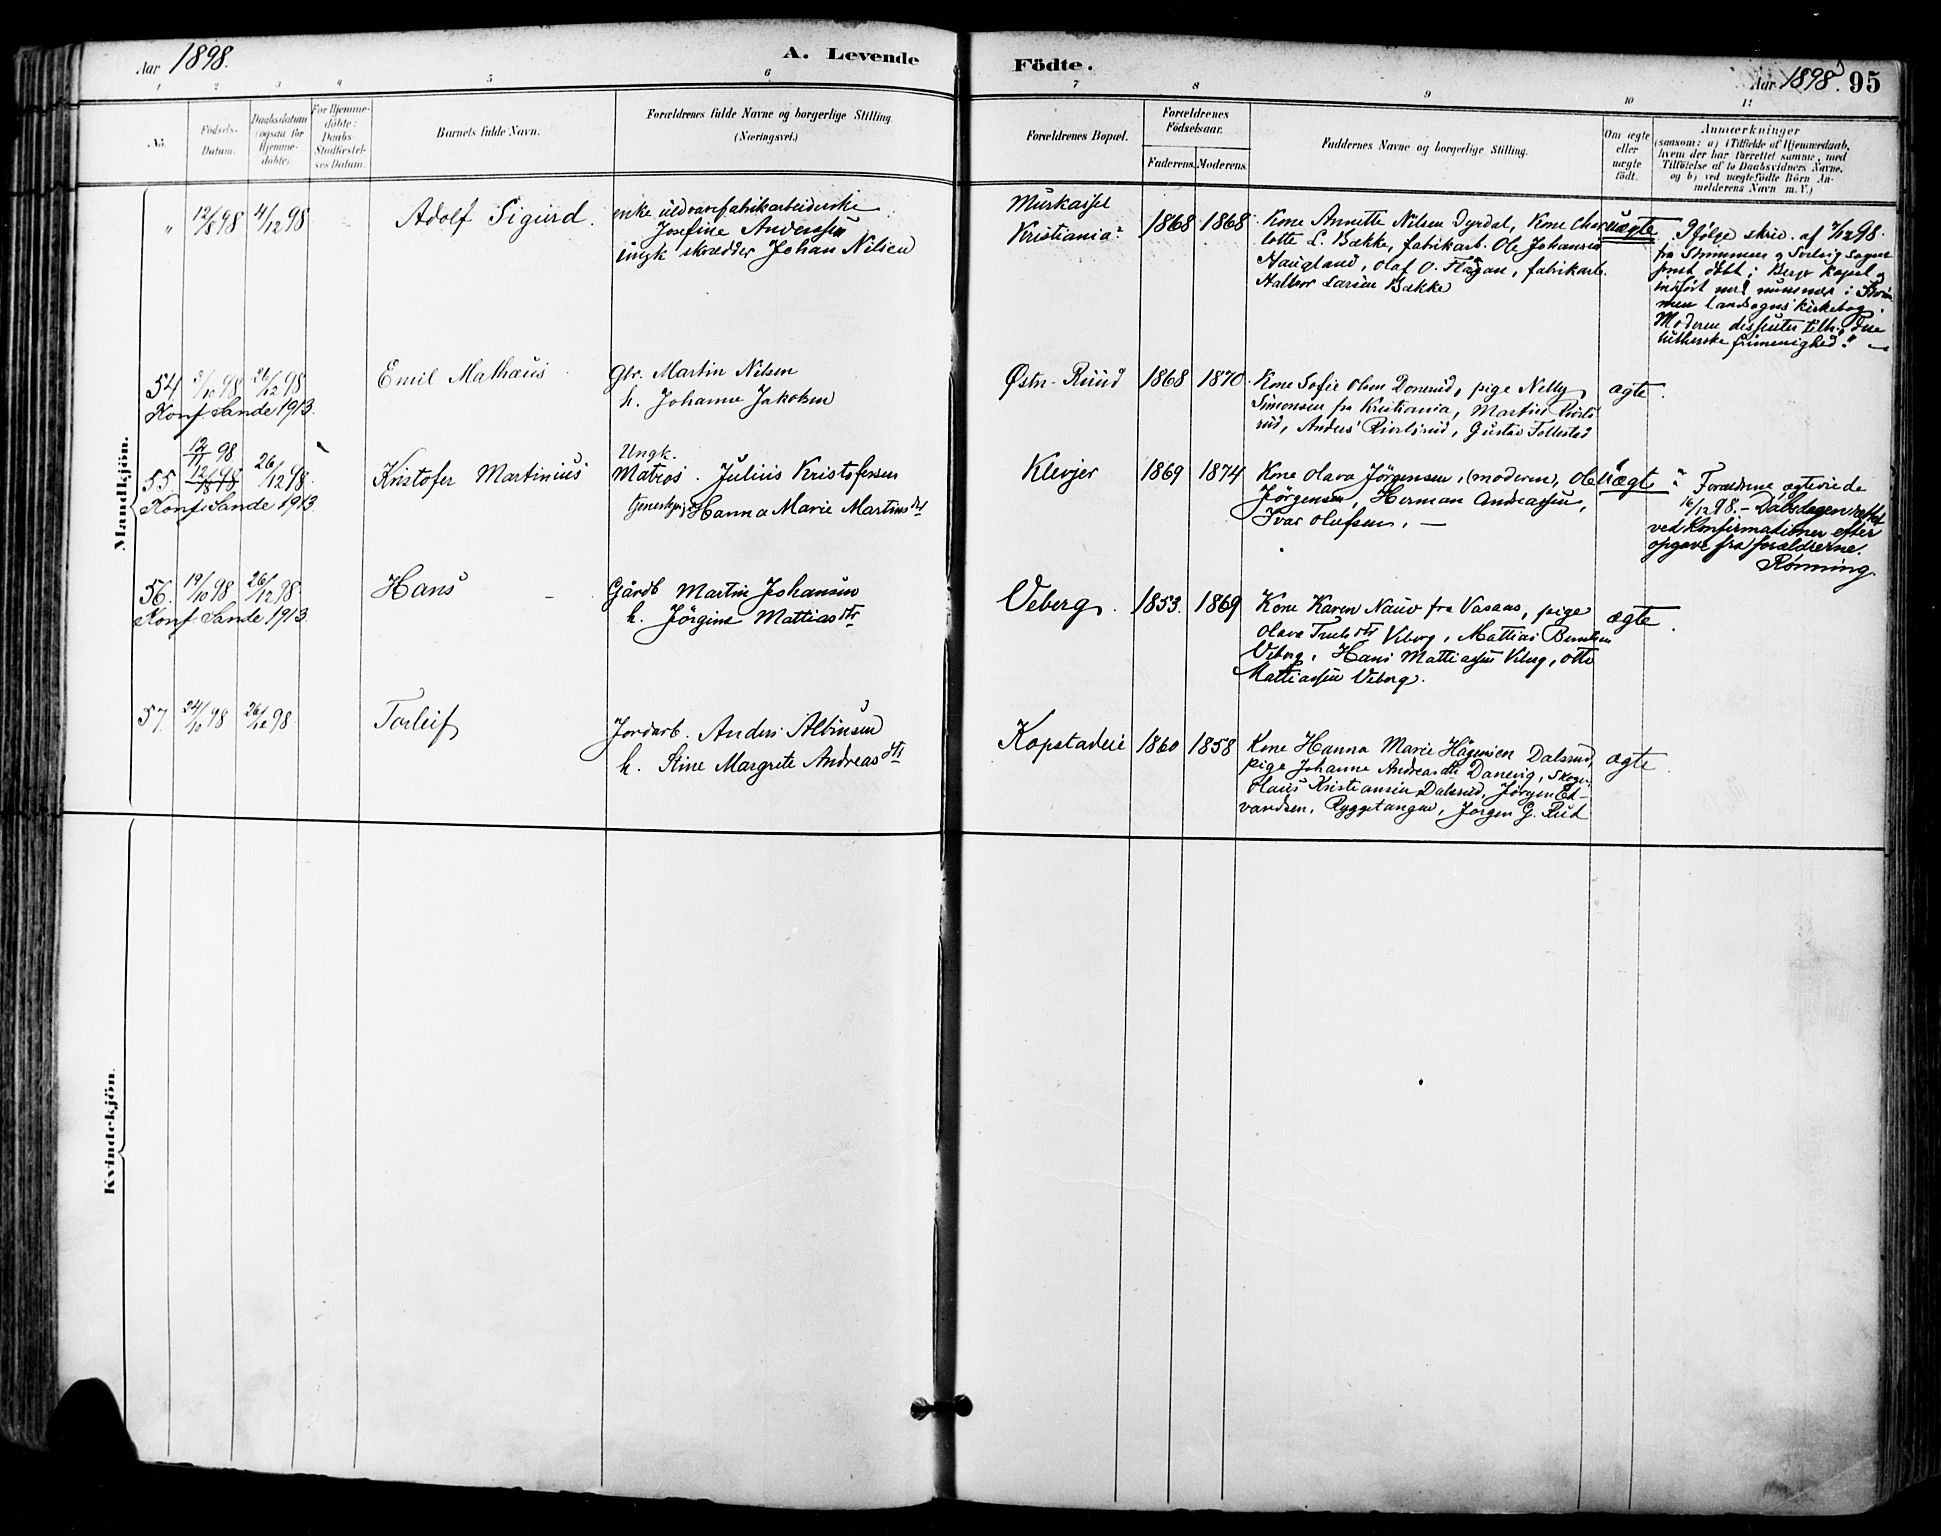 Aar 1898.
A. Levende
Födte.
Aar 1898. 95
1 2 3 4 5 6 7 8 9 10 11
No.
Födsels-
Datum.
Daabsdatum
(ogsaa for
Hjemme-
döbte).
For Hjemme-
döbte:
Daabs-
Stadfæstel-
ses Datum.
Barnets fulde Navn.
Forældrenes fulde Navne og borgerlige Stilling.
(Næringsvei.)
Forældrenes Bopæl.
Forældrenes
Födselsaar.
Faderens. Moderens.
Faddernes Navne og borgerlige Stilling.
Om ægte
eller
uægte
födt.
Anmærkninger
(saasom: a) i Tilfælde af Hjemmedaab,
hvem der har forrettet samme, med
Tilföielse af to Daabsvidners Navne.
og b) ved uægtefödte Börn An-
melderens Navn m. V.)
Mandkjön.
" 12/8 98 4/12 98
Adolf Sigurd.
enke uldvarefabrikarbeiderske
Josefine Anderssen
ungk skrædder Johan Nilsen
Murkassel
Kristiania?
1868 1868
Kone Annette Nilsen Dyrdal, Kone Char
lotte L. Bække, fabrikarb. Ole Johansen
Haugland, Olaf O. Flågan, fabrikarb.
Halvor Larsen Bække
uægte
Ifølge skriv. af 98
fra Strømmens og
døbt i Berger kapel og
indført med nummer i Strøm
men landsogns kirkebog.
Moderen dissenter tilh. "Den
lutherske frimenighed". —
54. 3/10 98 26/12 98
Konf. Sande 1913.
Emil Mathæus
Gbr. Martin Nilsen
h. Johanne Jakobsen
Østn-Ruud
1868 1870
Kone Sofie Olsen pige Nelly
Simonsen fra Kristiania, Martin
rud, Anders Gustav Follestad
ægte.
55 12/11 98 12/8 98 26/12 98.
Konf. Sande 1913.
Kristofer Martinius
Ungk.
Matros. Julius Kristofersen
tjenestepige Hanna Marie Martinsdtr
Klevjer
1869 1874
Kone Olava Jørgensen, (moderen), Ole
Jørgensen, Herman Andreassen,
Ivar Olufsen. —
uægte
Forældrene ægteviede
16/12 98. - Dåbsdagen rettet
ved konfirmationen efter
opgave fra forældrerne.
Rønning.
56. 19/10 98 26/12 98
Konf Sande 1913.
Hans -
Gårdb Martin Johansen
h. Jørgine Mattiasdtr
Veberg.
1853. 1869
Kone Karen Nauv fra Vasaas, pige
Olava Trulsdtr Veberg, Mattias Berntsen
Veberg, Hans Mattiassen Veberg, Otto
Mattiassen Veberg.
ægte.
57. 24/10 98 26/12 98
Torleif
Jordarb. Anders Albinsen
h. Stine Margrete Andreasdtr
Kopstadeie
1860 1858
Kone Hanna Marie Hågensen Dalsrud,
pige Johanne Andreasdtr Danevig, Skoger
Olaus Kristiansen Dalsrud, Jørgen Ed-
vardsen, Ryggetangen, Jørgen G. Rud
ægte.
Kvindekjön.